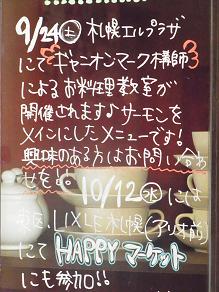 9/24(土)札幌エルプラザ
にてギャニオンマーク講師3
によるお料理教室が
開催されます♪サーモンを
メインにしたメニューです!
興味のある方はお問い合わ
せを!。10/12(水)には
東区、LIXLE札幌(アリオ前)
にて HAPPYマーケット
にも参加!!